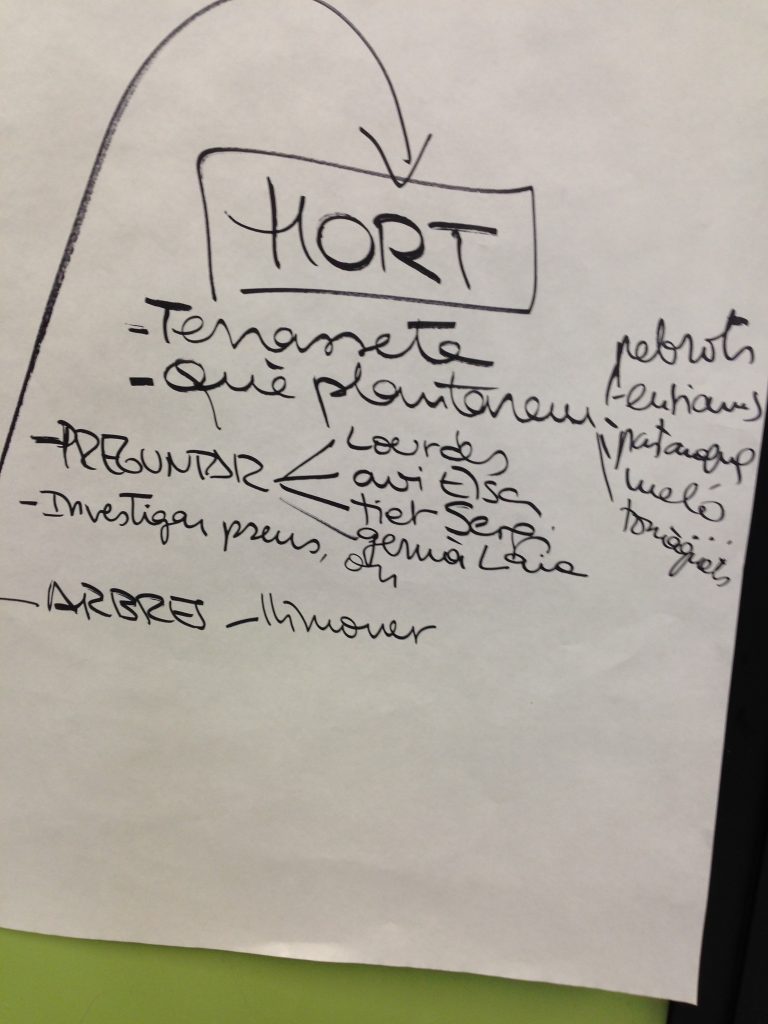 HORT
- Terrasseta
- Què plantarem
pebrots
enciams
patanque
meló
...
tomàquets
- PREGUNTAR
Lourdes
avi Elsa
tiet Sergi
germà Laia
- Investigar preus, on
- ARBRES - llimoner